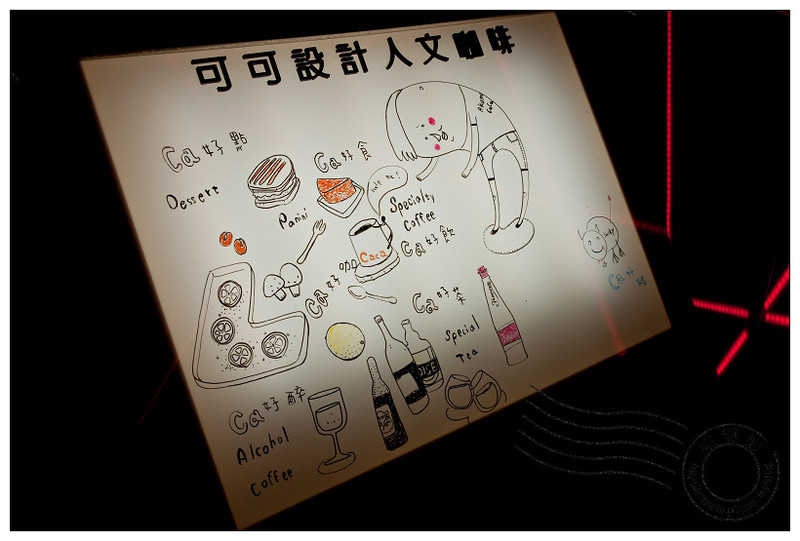 可可設計人文咖啡
Ca好點
Dessert
Ca好食
Panini
Specialty
Coffee
Ca好飲
Caca
Ca好咖
Ca好茶
Special
Tea
Ca好醉
Alcohol
Coffee